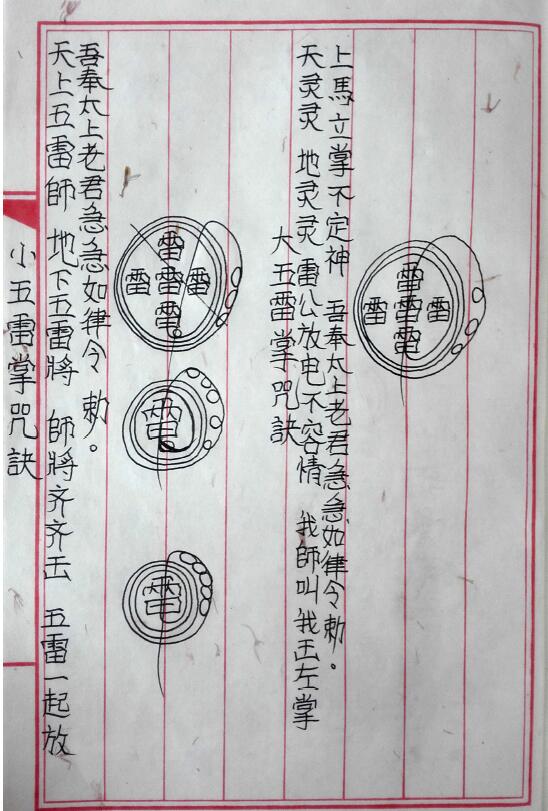 小五雷掌咒訣
天上五雷師 地下五雷將 師將齐齐 五雷一起放
吾奉太上老君急急如律令 勅。
雷
雷雷雷
電
電
電
大五雷掌咒訣
天灵灵 地灵灵 雷公放电不容情 我師叫我左掌
上馬立掌不定神 吾奉太上老君急急如律令勅。
雷
雷雷雷
電